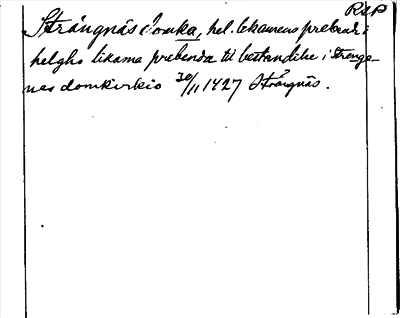 RAP
Strängnäs domka, hel. lekamens prebend i
helgho likama prebenda til bestandilse i Strenge-
nes domkirkio 30/11 1427 Strängnäs.